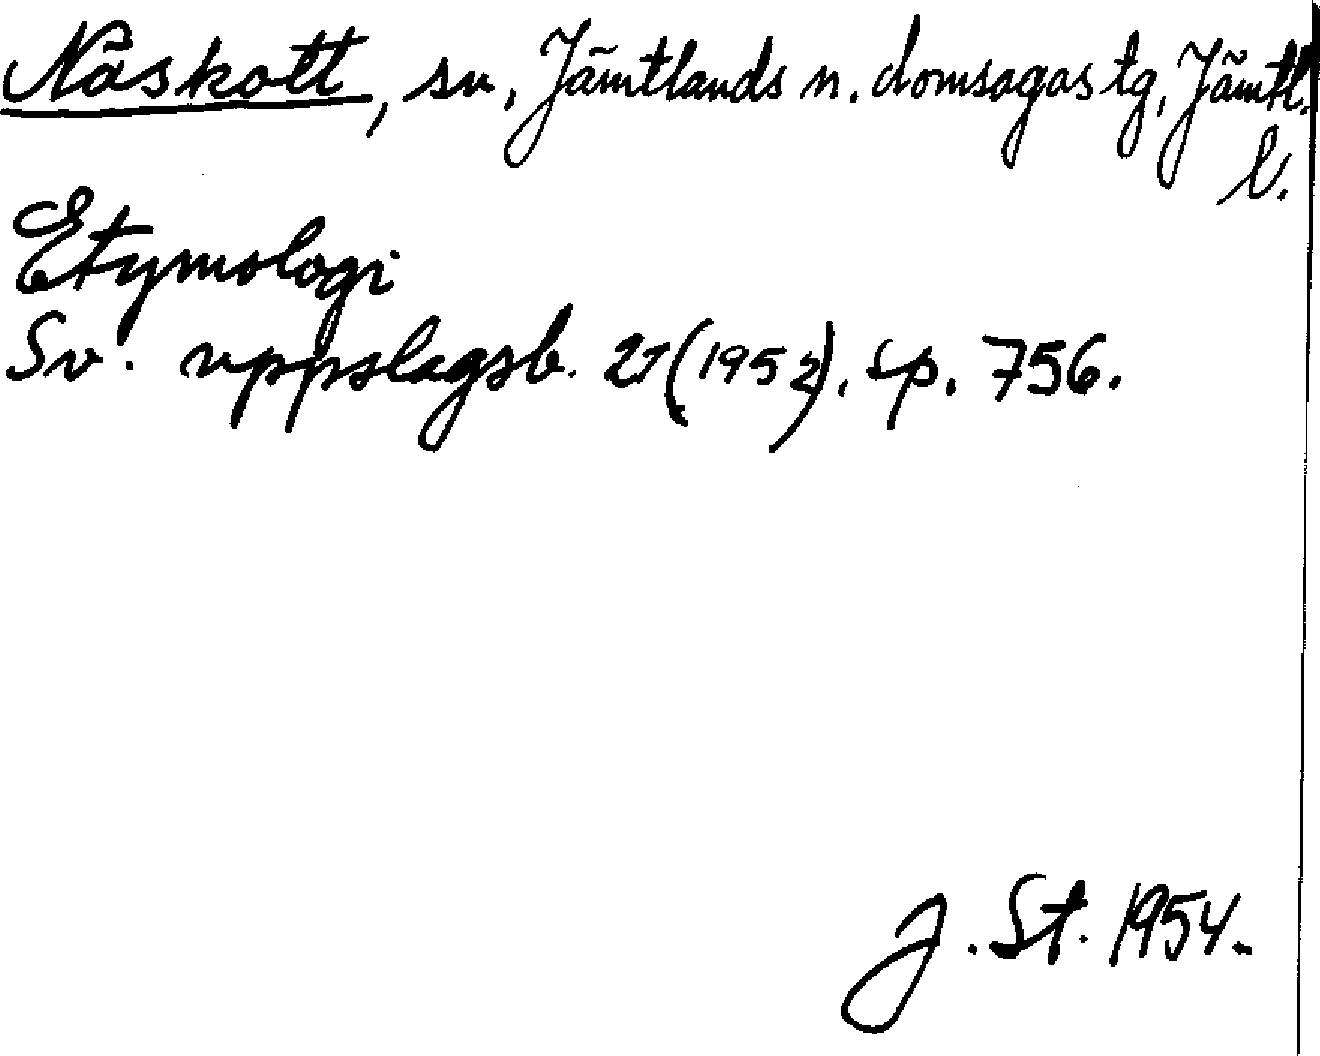 Näskott, sn, Jämtlands n. domsagas tg, Jämtl.
l.
Etymologi
Sv. uppslagsb. 21 (1952), sp. 756.
J. St. 1954.